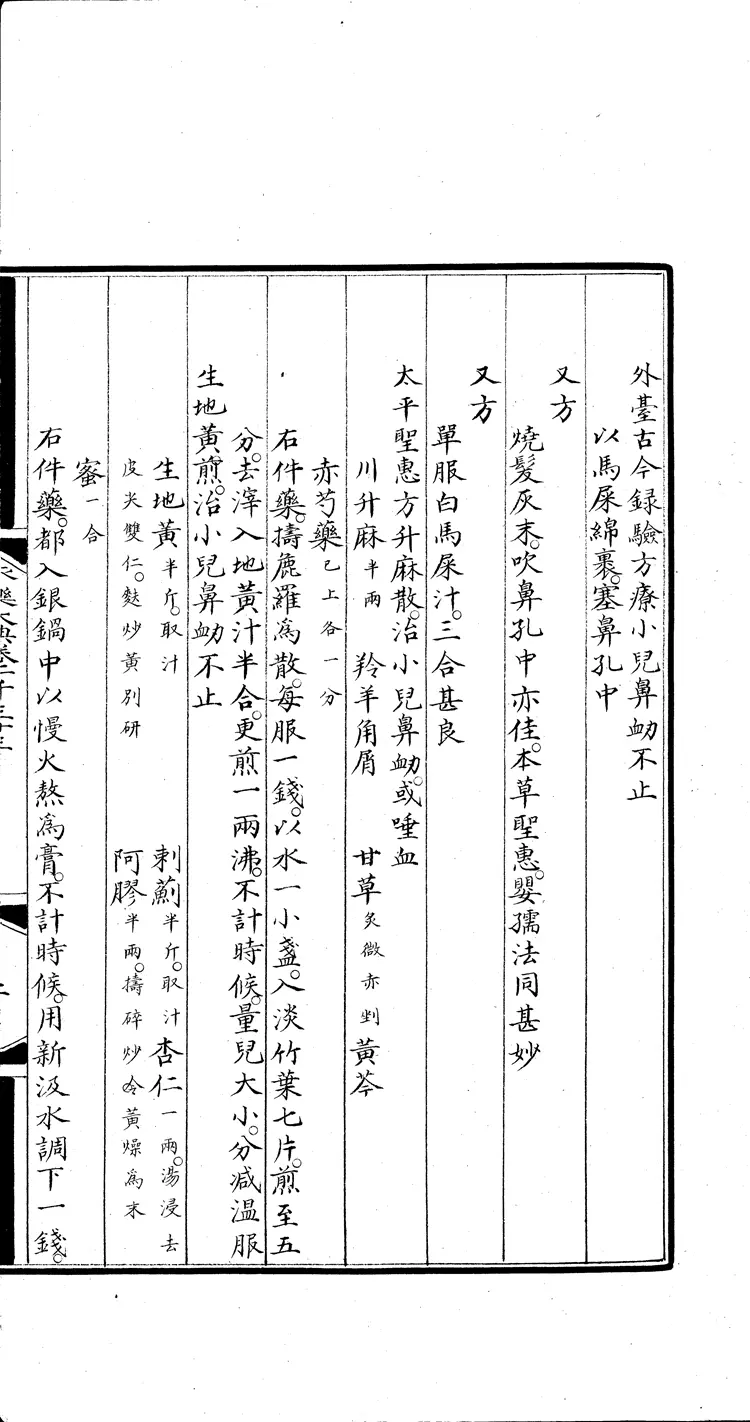 外臺古今録驗方療小兒鼻衄不止
以馬屎綿裹。塞鼻孔中
又方
燒髮灰末。吹鼻孔中亦佳。本草聖惠。嬰孺法同甚妙
又方
單服白馬屎汁。三合甚良
太平聖惠方升麻散。治小兒鼻衄。或唾血
川升麻半兩 羚羊角屑 甘草炙微赤剉 黃芩
赤芍藥已上各一分
右件藥。擣麁羅為散。每服一錢。以水一小盞。入淡竹葉七片。煎至五
分。去滓入地黃汁半合。更煎一兩沸。不計時候。量兒大小。分减温服
生地黃煎。治小兒鼻衄不止
生地黃半斤。取汁 刺薊半斤。取汁 杏仁一兩。湯浸去
皮尖雙仁。麩炒黃別研 阿膠半兩。擣碎炒令黃燥為末
蜜一合
右件藥。都入銀鍋中以慢火熬為膏。不計時候。用新汲水調下一錢。